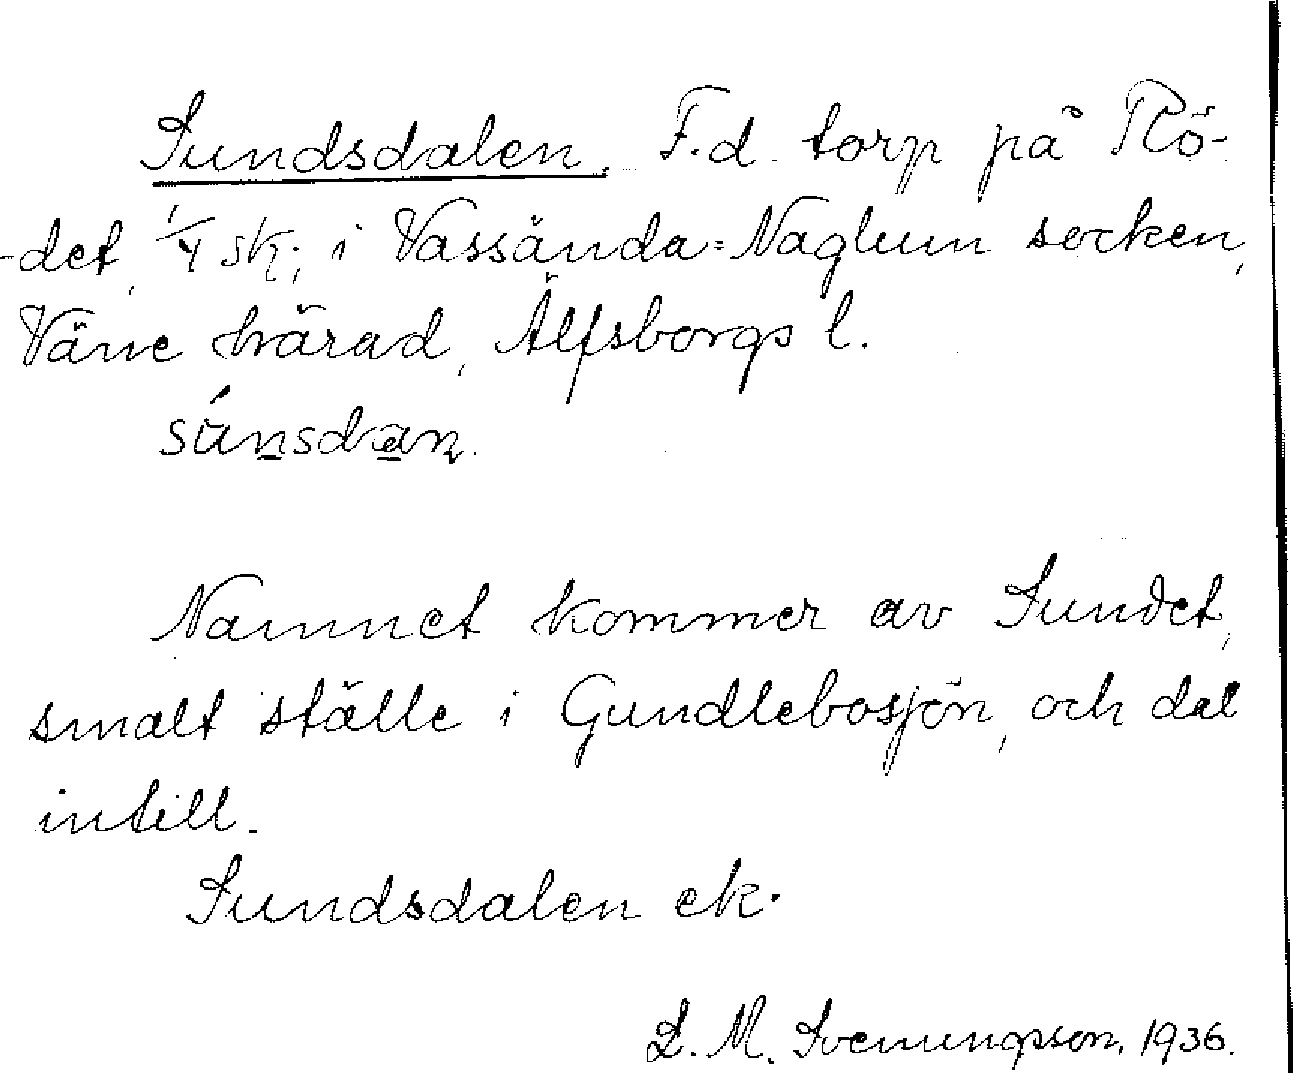 Sundsdalen. F.d. torp på Rö-
-det, 1/4 sk., i Vassända=Naglum socken,
Väne härad, Älfsborgs l.
Namnet kommer av Sundet,
smalt ställe i Gundlebosjön, och dal
intill.
Sundsdalen ek.
L. M. Svenungsson, 1936.